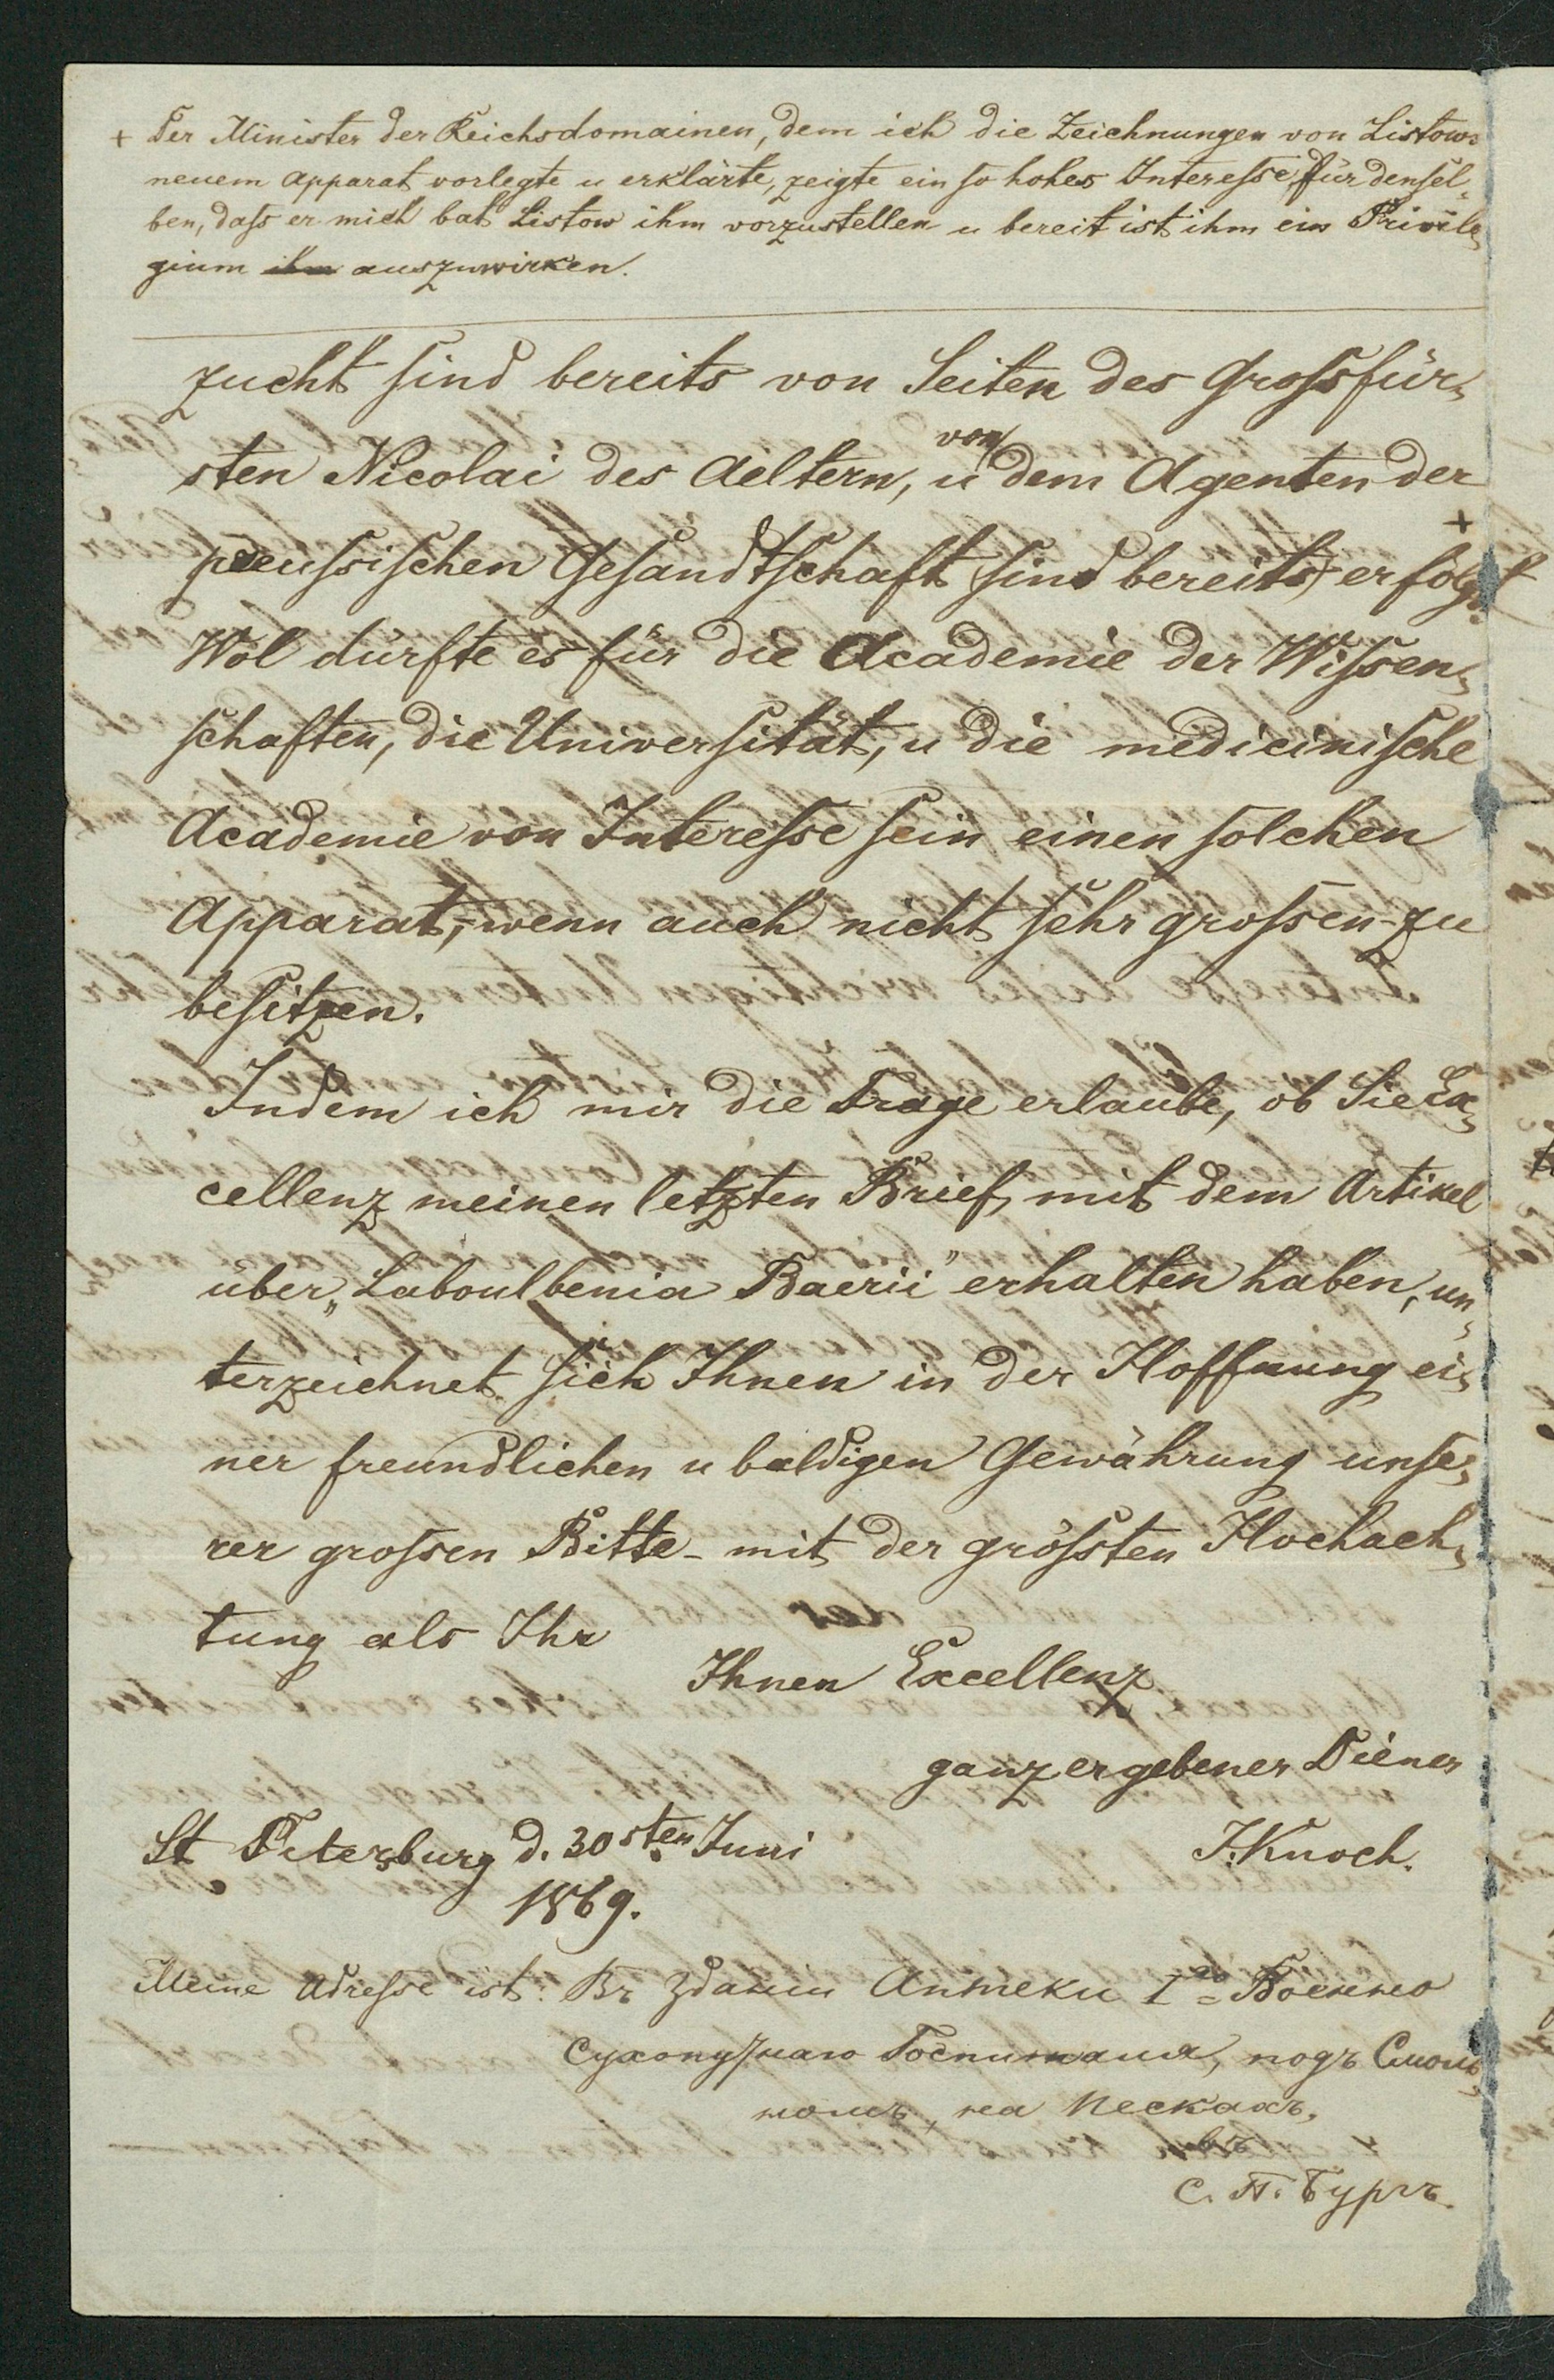 + Der Minister der Reichsdomainen, dem ich die Zeichnungen von Listows
neuem Apparat vorlegte u erklärte, zeigte ein so hohes Interesse für densel-
ben, dass er mich bat Listow ihm vorzustellen u bereit ist ihm ein Privile-
gium ihm auszuwirken.
zucht sind bereits von Seiten des Grossfür-
sten Nicolai des Aeltern, u von dem Agenten der
preussischen Gesandtschaft (sind bereits) erfolgt. +
Wol dürfte es für die Academie der Wissen-
schaften, die Universität, u die medicinische
Academie von Interesse sein einen solchen
Apparat,-wenn auch nicht sehr grossen-zu
besitzen.
Indem ich mir die Frage erlaube, ob Sie Ex-
cellenz meinen letzten Brief, mit dem Artikel
über „Laboulbenia Baerii" erhalten haben, un-
terzeichnet sich Ihnen in der Hoffnung ei-
ner freundlichen u baldigen Gewährung unse-
rer grossen Bitte - mit der grössten Hochach-
tung als Ihr
Ihnen Excellenz
ganz ergebener Diener
St Petersburg d. 30sten Juni J. Knoch.
1869.
Meine Adresse ist: Въ зданіи Аптеки 1го Военно
Сухопутнаго Госпиталя, подъ Смоль-
нымъ, на Пескахъ,
въ
С. П. Бургъ.